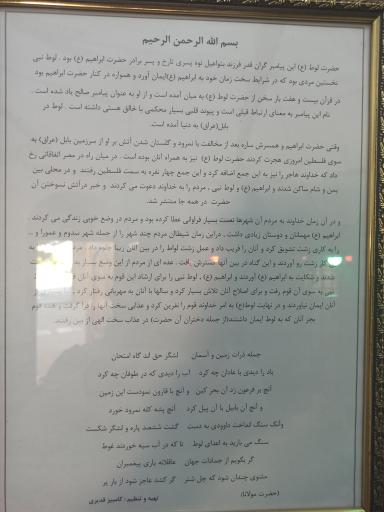 بسم الله الرحمن الرحیم
حضرت لوط (ع) این پیامبر گران قدر فرزند بتواهیل نوه پسری تارخ و پسر برادر حضرت ابراهیم (ع) بود . لوط نبی
نخستین مردی بود که در شرایط سخت زمان خود به ابراهیم (ع) ایمان آورد و همواره در کنار حضرت ابراهیم بود
در قرآن بیست و هفت بار سخن از حضرت لوط (ع) به میان آمده است و از او به عنوان پیامبر صالح یاد شده است .
نام این پیامبر به معنای ارتباط قبلی است و پیوند قلبی بسیار محکمی با خالق هستی داشته است . لوط در
بابل(عراق) به دنیا آمده است.
وقتی حضرت ابراهیم و همسرش ساره بعد از مخالفت با نمرود و گلستان شدن آتش بر او از سرزمین بابل (عراق) به
سوی فلسطین امروزی هجرت کردند حضرت لوط (ع) نیز به همراه آنان بوده است . در میان راه در مصر اتفاقاتی رخ
داد که خداوند هاجر را نیز به این جمع اضافه کرد و این جمع چهار نفره به سمت فلسطین رفتند و در محلی بین
یمن و شام ساکن شدند و ابراهیم (ع) و لوط نبی ، مردم را به خداوند دعوت می کردند و خبر درآتش نسوختن آن
حضرت در همه جا منتشر شد.
و در آن زمان خداوند به مردم آن شهرها نعمت بسیار فراوانی عطا کرده بود و مردم در وضع خوبی زندگی می کردند .
ابراهیم (ع) مهمانان و دوستان زیادی داشت . دراین زمان شیطان مردم چند شهر را از جمله شهر سدوم و عمورا و ..
را به کاری زشت تشویق کرد و آنان را فریب داد و عمل زشت لواط را در بین آنان زیبا جلوه داد . مردم به
کار زشت رو آوردند و این گناه در بین آنها گسترش یافت . عده ای از مردم از این وضع بسیار
شدند و شکایت به ابراهیم (ع) آوردند و ابراهیم (ع) ، لوط نبی را برای ارشاد این قوم به سوی آنان
نبی به سوی آن قوم رفت و برای اصلاح آنان تلاش بسیار کرد و سالها با آنان به مهربانی رفتار کرد
آنان ایمان نیاوردند و در نهایت لوط(ع) به امر خداوند قوم را نفرین کرد و عذابی سخت آنها را فرا گرفت و همه قوم
بجز آنان که به لوط ایمان داشتند(از جمله دختران آن حضرت) در عذاب سخت الهی از بین رفتند.
جمله ذرات زمین و آسمان لشگر حق اند گاه امتحان
باد را دیدی با عادان چه کرد آب را دیدی که در طوفان چه کرد
آنچ بر فرعون زد آن بحر کین و آنچ با قارون نمودست این زمین
و آنچ آن بابیل با آن پیل کرد آنچ پشه کله نمرود خورد
وآنک سنگ انداخت داوودی به دست گشت ششصد پاره و لشگر شکست
سنگ می بارید به اعدای لوط تا که در آب سیه خوردند غوط
گر بگویم از جمادات جهان عاقلانه یاری پیغمبران
مثنوی چندان شود که چل شتر گر کشد عاجز شود از بار پر
(حضرت مولانا) تهیه و تنظیم : کامبیز قدیری